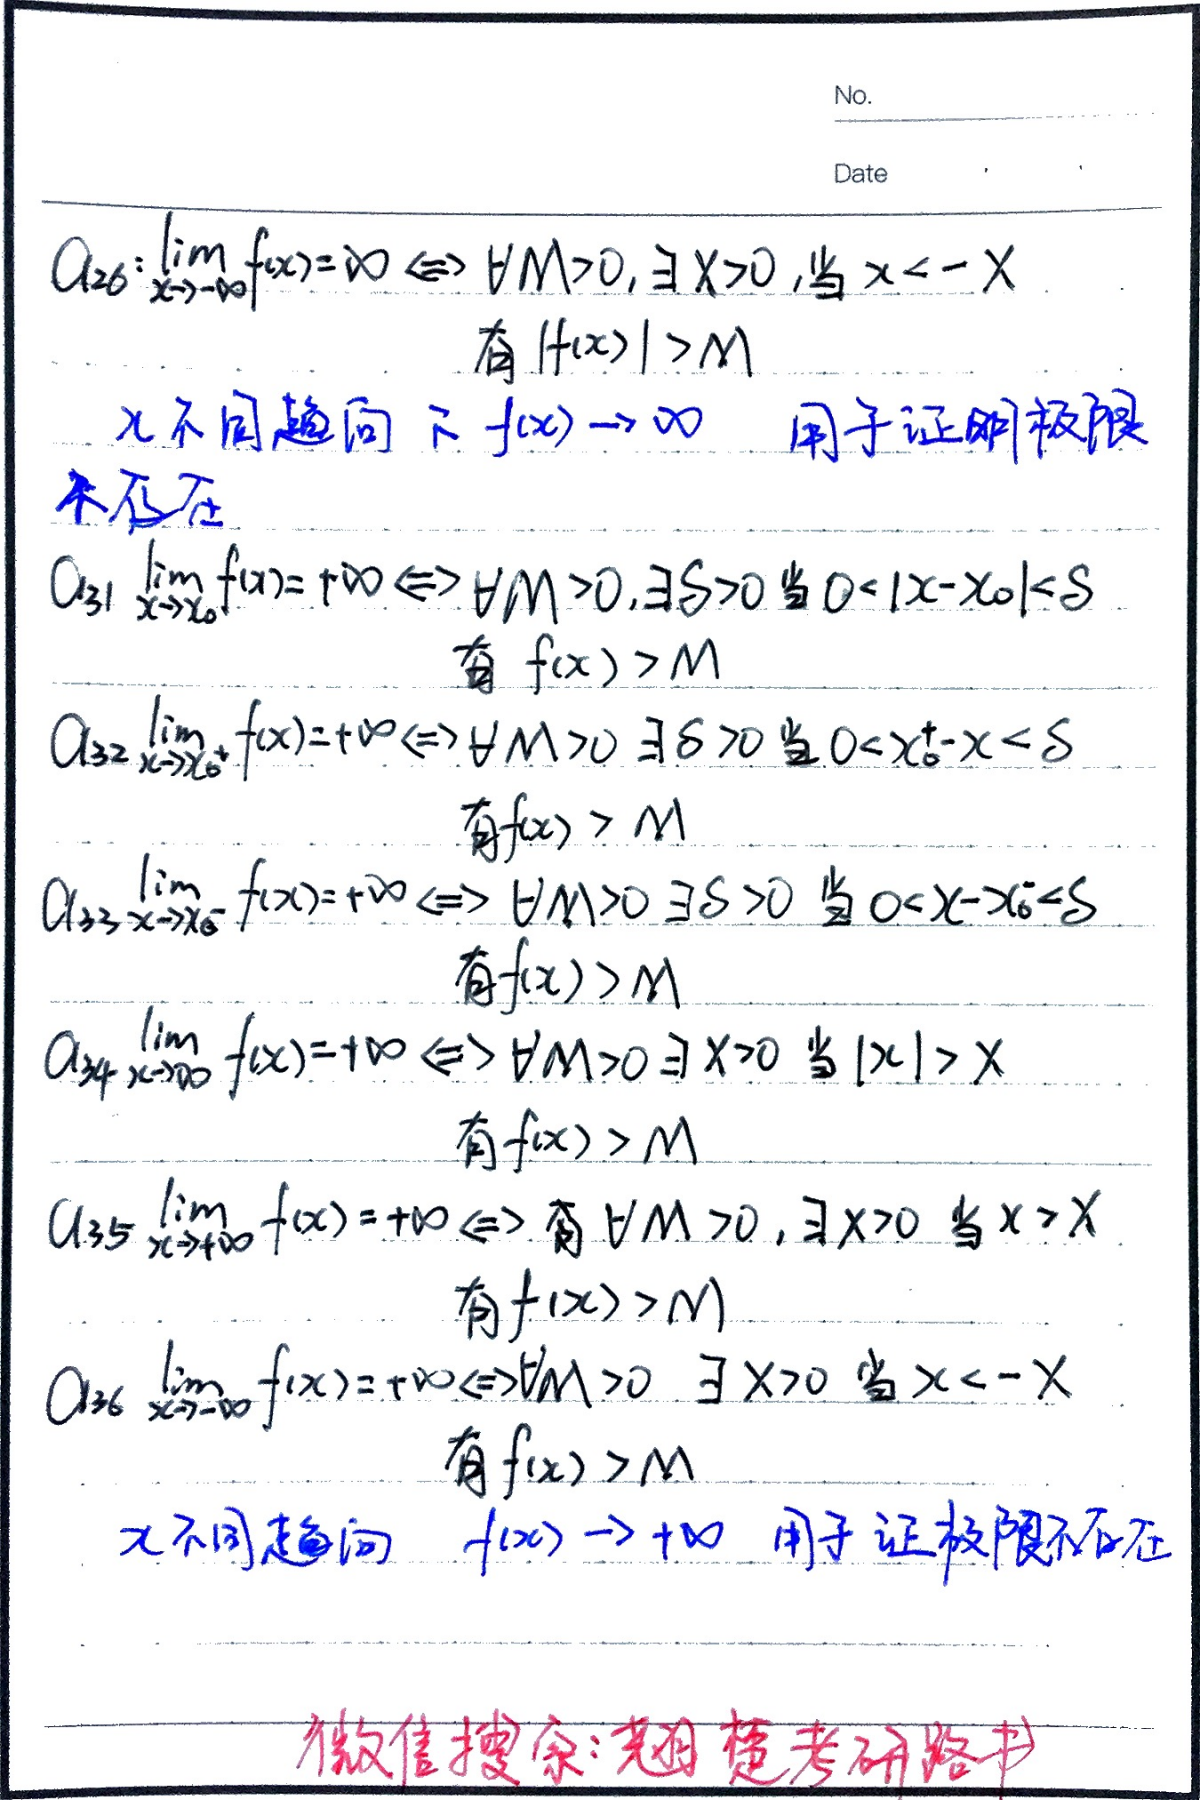 No.
Date
a26: lim x→-∞ f(x)=∞ ⇔ ∀M>0,∃X>0,当 x<-X
有|f(x)|>M
x不同趋向下 f(x)→∞ 用于证明极限
不存在
a31 lim x→x₀ f(x)=+∞ ⇔ ∀M>0,∃δ>0 当 0<|x-x₀|<δ
有 f(x)>M
a32 lim x→x₀⁺ f(x)=+∞ ⇔ ∀M>0 ∃δ>0 当 0<x₀⁺-x<δ
有f(x)>M
a33 lim x→x₀⁻ f(x)=+∞ ⇔ ∀M>0 ∃δ>0 当 0<x-x₀⁻<δ
有f(x)>M
a34 lim x→∞ f(x)=+∞ ⇔ ∀M>0 ∃X>0 当|x|>X
有f(x)>M
a35 lim x→+∞ f(x)=+∞ ⇔ 有 ∀M>0,∃X>0 当 x>X
有f(x)>M
a36 lim x→-∞ f(x)=+∞ ⇔ ∀M>0 ∃X>0 当 x<-X
有f(x)>M
x不同趋向 f(x)→+∞ 用于证极限不存在
微信搜索: 楚考研路书